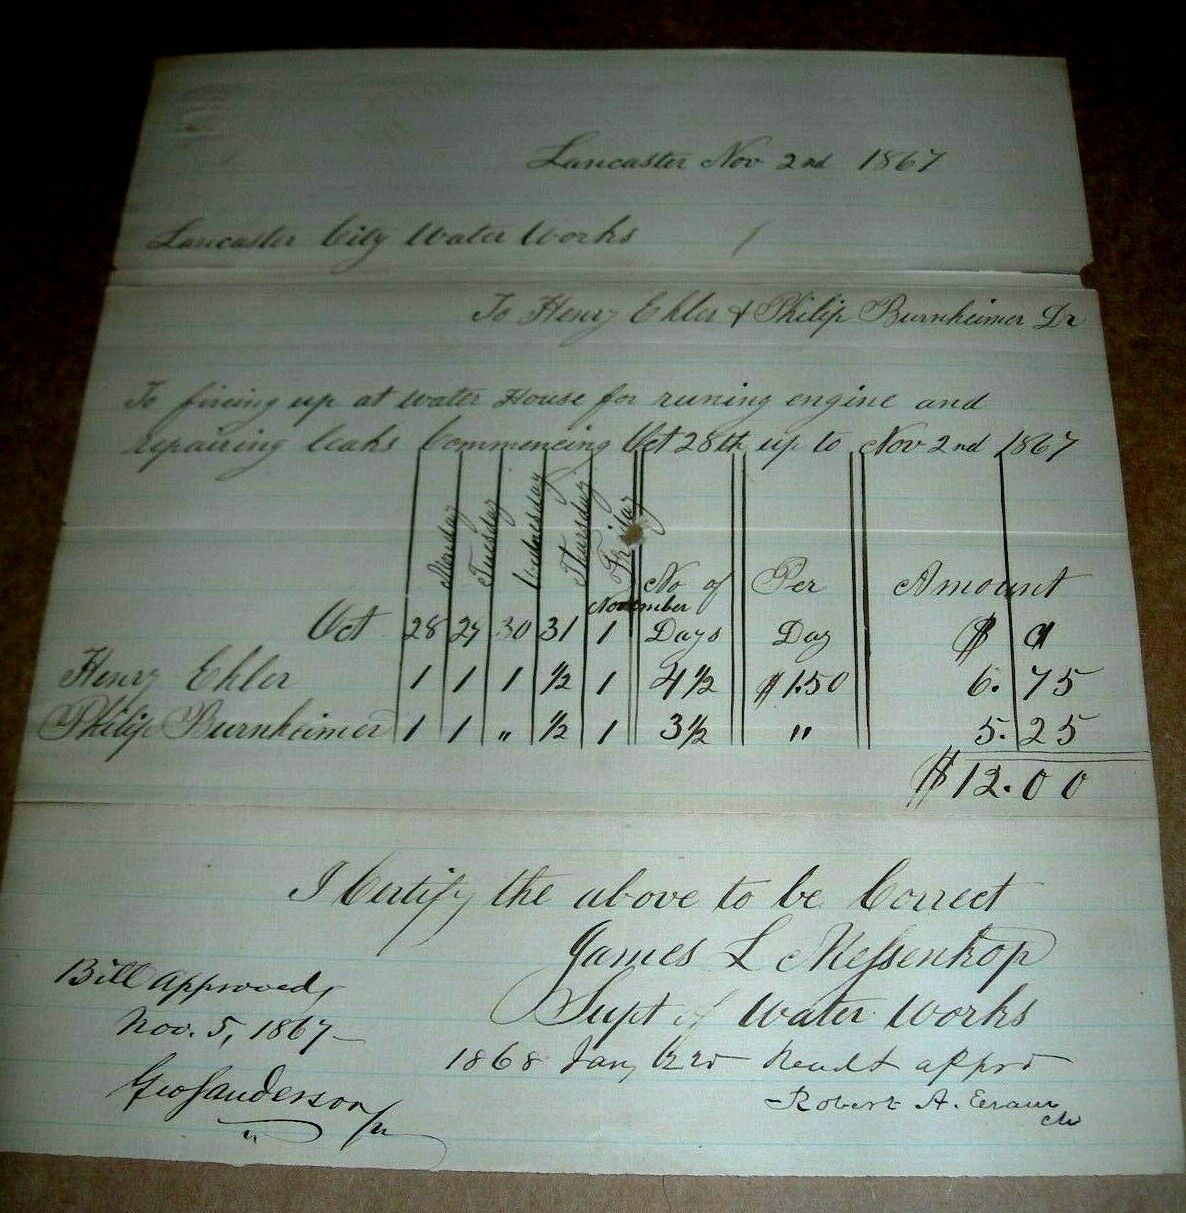 Lancaster Nov 2nd 1867
Lancaster City Water Works
To Henry Ehler & Philip Burnheimer Dr
To fireing up at water House for runing engine and
repairing leaks Commencing Oct 28th up to Nov 2nd 1867
Monday Tuesday Wednesday Thursday Friday No of Per Amount
November
Oct 28 29 30 31 1 Days Day $ c
Henry Ehler 1 1 1 1/2 1 4 1/2 $1.50 6. 75
Philip Burnheimer 1 1 " 1/2 1 3 1/2 " 5. 25
$12.00
I Certify the above to be Correct
James L Messenkop
Supt of Water Works
Bill Approved,
Nov. 5, 1867
Geo Sanderson
1868 Jan, Read & appr
Robert A.